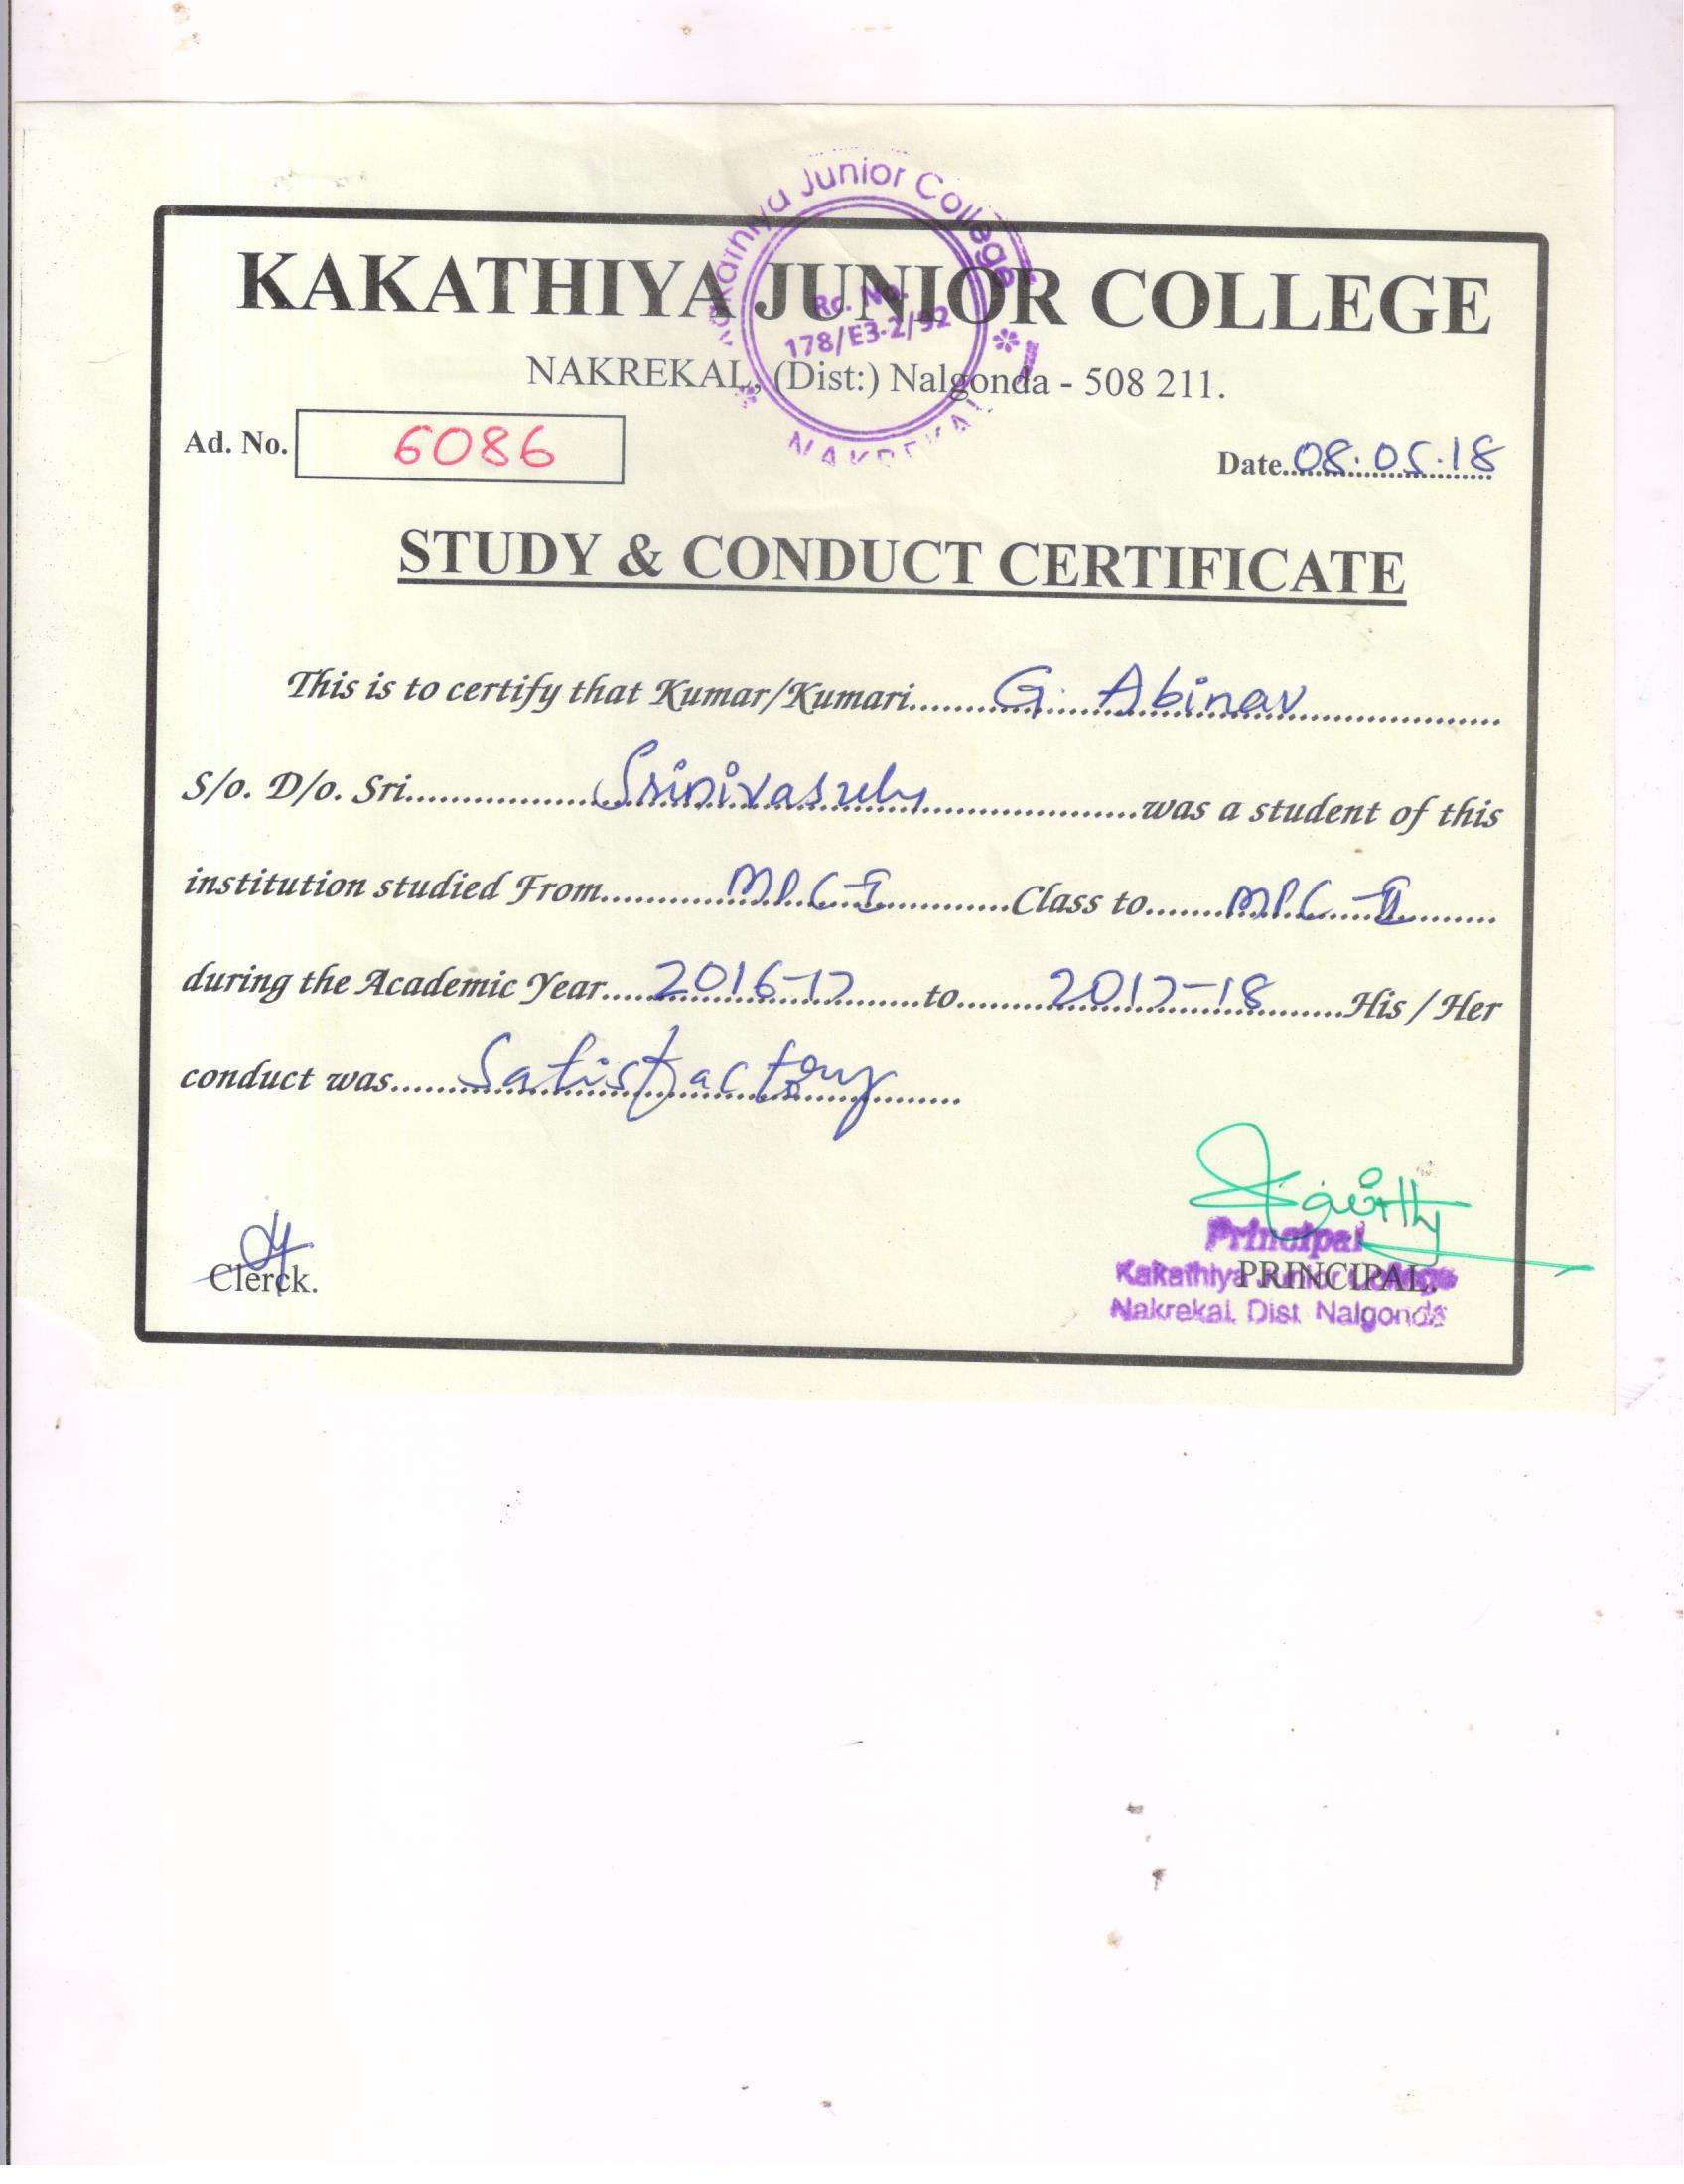 Kakathiya Junior College
KAKATHIYA JUNIOR COLLEGE
Rc. No.
178/E3-2/92
NAKREKAL, (Dist:) Nalgonda - 508 211.
NAKREKAL
Ad. No. 6086
Date 08.05.18
STUDY & CONDUCT CERTIFICATE
This is to certify that Kumar/Kumari G. Abinav
S/o. D/o. Sri Srinivasulu was a student of this
institution studied From MPC-I Class to MPC-II
during the Academic Year 2016-17 to 2017-18 His / Her
conduct was Satisfactory
Principal
Clerck. Kakathiya Junior College PRINCIPAL.
Nakrekal, Dist. Nalgonda